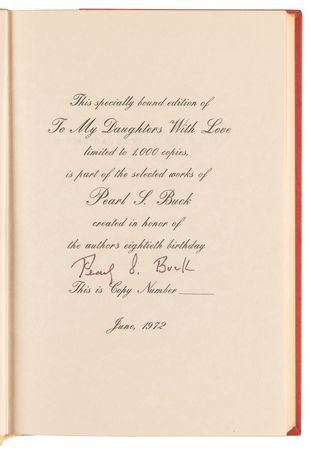 This specially bound edition of
To My Daughters With Love
limited to 1,000 copies,
is part of the selected works of
Pearl S. Buck
created in honor of
the authors eightieth birthday
Pearl S. Buck
This is Copy Number
June, 1972